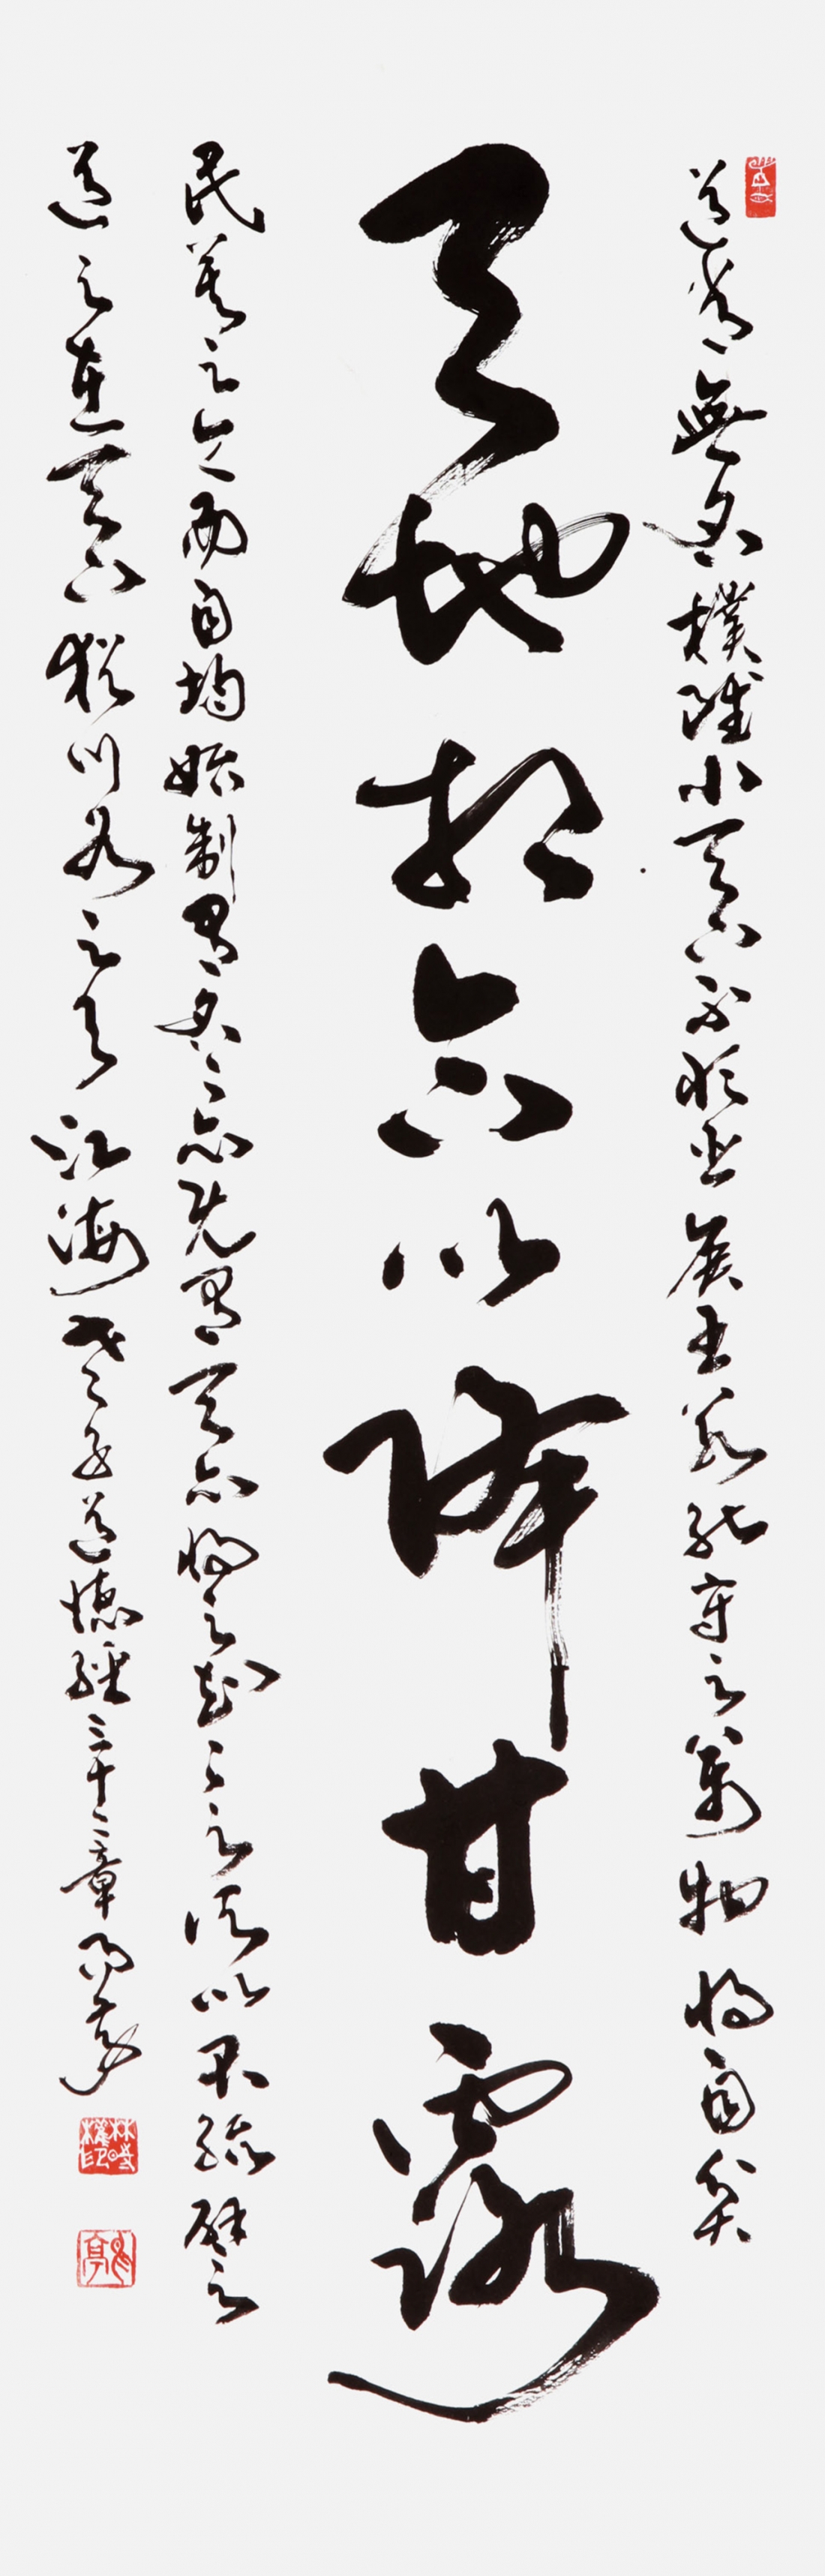 道常無名樸雖小天下不敢臣侯王若能守之萬物將自賓
天地相合以降甘露
民莫之令而自均始制有名〻亦既有天亦將之知〻之所以不殆譬之
道之在天下猶川谷之與江海老子道德經三十二章